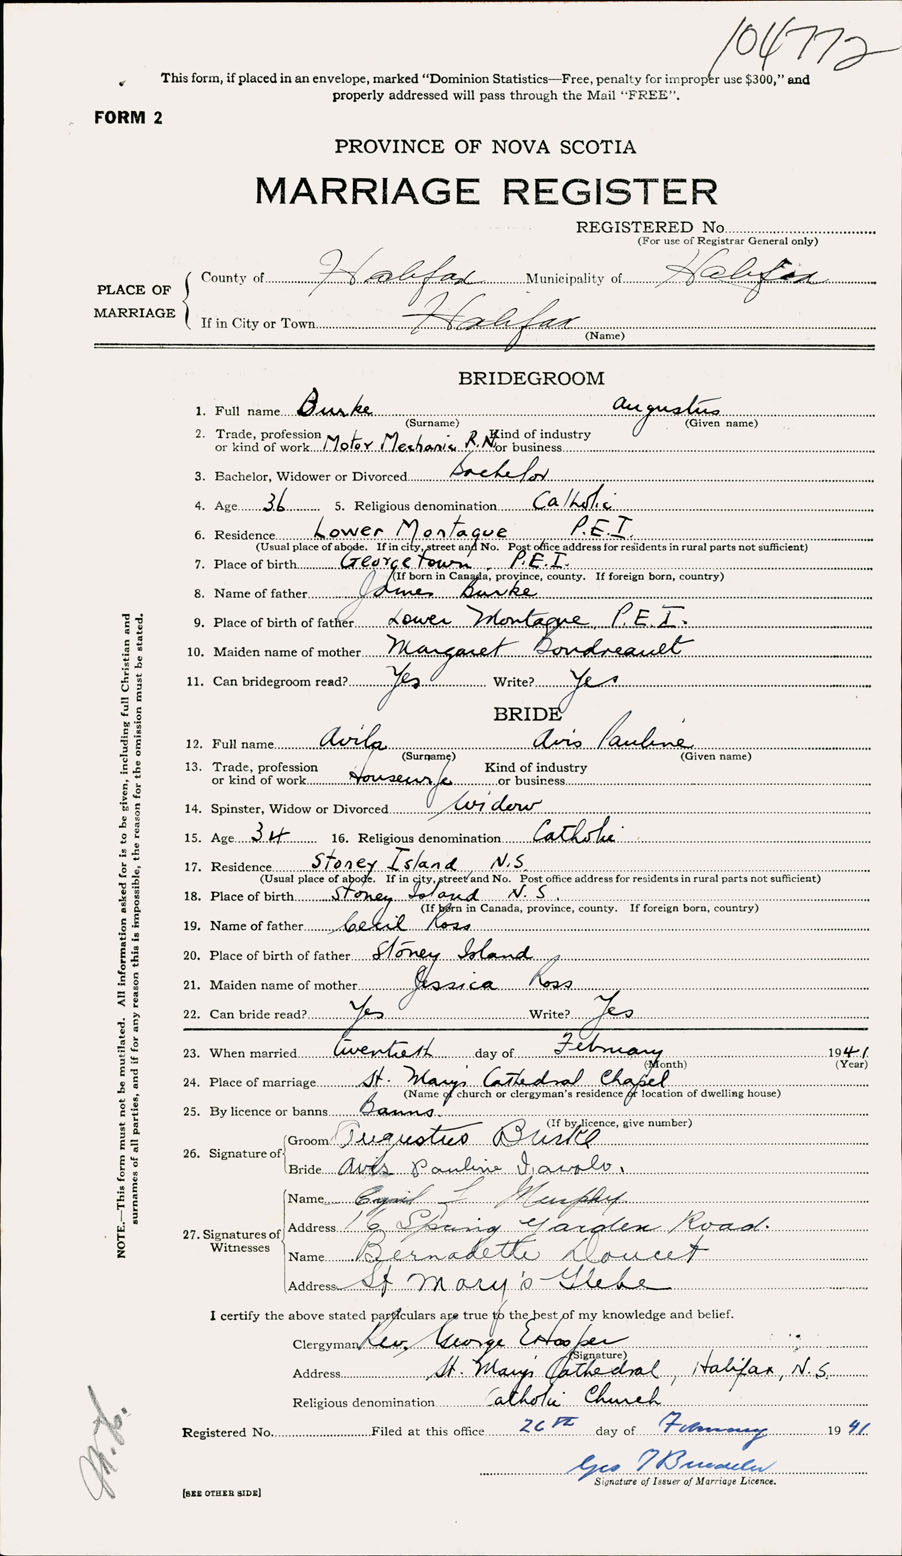 104772
This form, if placed in an envelope, marked "Dominion Statistics—Free, penalty for improper use $300," and
properly addressed will pass through the Mail "FREE".
FORM 2
PROVINCE OF NOVA SCOTIA
MARRIAGE REGISTER
REGISTERED No.
(For use of Registrar General only)
PLACE OF MARRIAGE
County of Halifax Municipality of Halifax
If in City or Town Halifax
(Name)
BRIDEGROOM
1. Full name Burke Augustus
(Surname) (Given name)
2. Trade, profession or kind of work Motor Mechanic R.N. Kind of industry or business
3. Bachelor, Widower or Divorced Bachelor
4. Age 36 5. Religious denomination Catholic
6. Residence Lower Montague P.E.I.
(Usual place of abode. If in city, street and No. Post office address for residents in rural parts not sufficient)
7. Place of birth Georgetown, P.E.I.
(If born in Canada, province, county. If foreign born, country)
8. Name of father James Burke
9. Place of birth of father Lower Montague P.E.I.
10. Maiden name of mother Margaret Boudreault
11. Can bridegroom read? Yes Write? Yes
BRIDE
12. Full name Avila Avis Pauline
(Surname) (Given name)
13. Trade, profession or kind of work Housewife Kind of industry or business
14. Spinster, Widow or Divorced Widow
15. Age 34 16. Religious denomination Catholic
17. Residence Stoney Island N.S.
(Usual place of abode. If in city, street and No. Post office address for residents in rural parts not sufficient)
18. Place of birth Stoney Island N.S.
(If born in Canada, province, county. If foreign born, country)
19. Name of father Cecil Ross
20. Place of birth of father Stoney Island
21. Maiden name of mother Jessica Ross
22. Can bride read? Yes Write? Yes
23. When married twentieth day of February 1941
(Month) (Year)
24. Place of marriage St. Mary's Cathedral Chapel
(Name of church or clergyman's residence or location of dwelling house)
25. By licence or banns Banns.
(If by licence, give number)
26. Signature of Groom Augustus Burke
Bride Avis Pauline
27. Signatures of Witnesses
Name Cyril L Murphy
Address 16 Spring Garden Road.
Name Bernadette Doucet
Address St Mary's Glebe
I certify the above stated particulars are true to the best of my knowledge and belief.
Clergyman Rev. George E Hooper
(Signature)
Address St. Mary's Cathedral, Halifax, N.S.
Religious denomination Catholic Church
Registered No. Filed at this office 26th day of February 1941
Geo T
Signature of Issuer of Marriage Licence.
[SEE OTHER SIDE]
NOTE.—This form must not be mutilated. All information asked for is to be given, including full Christian and
surnames of all parties, and if for any reason this is impossible, the reason for the omission must be stated.